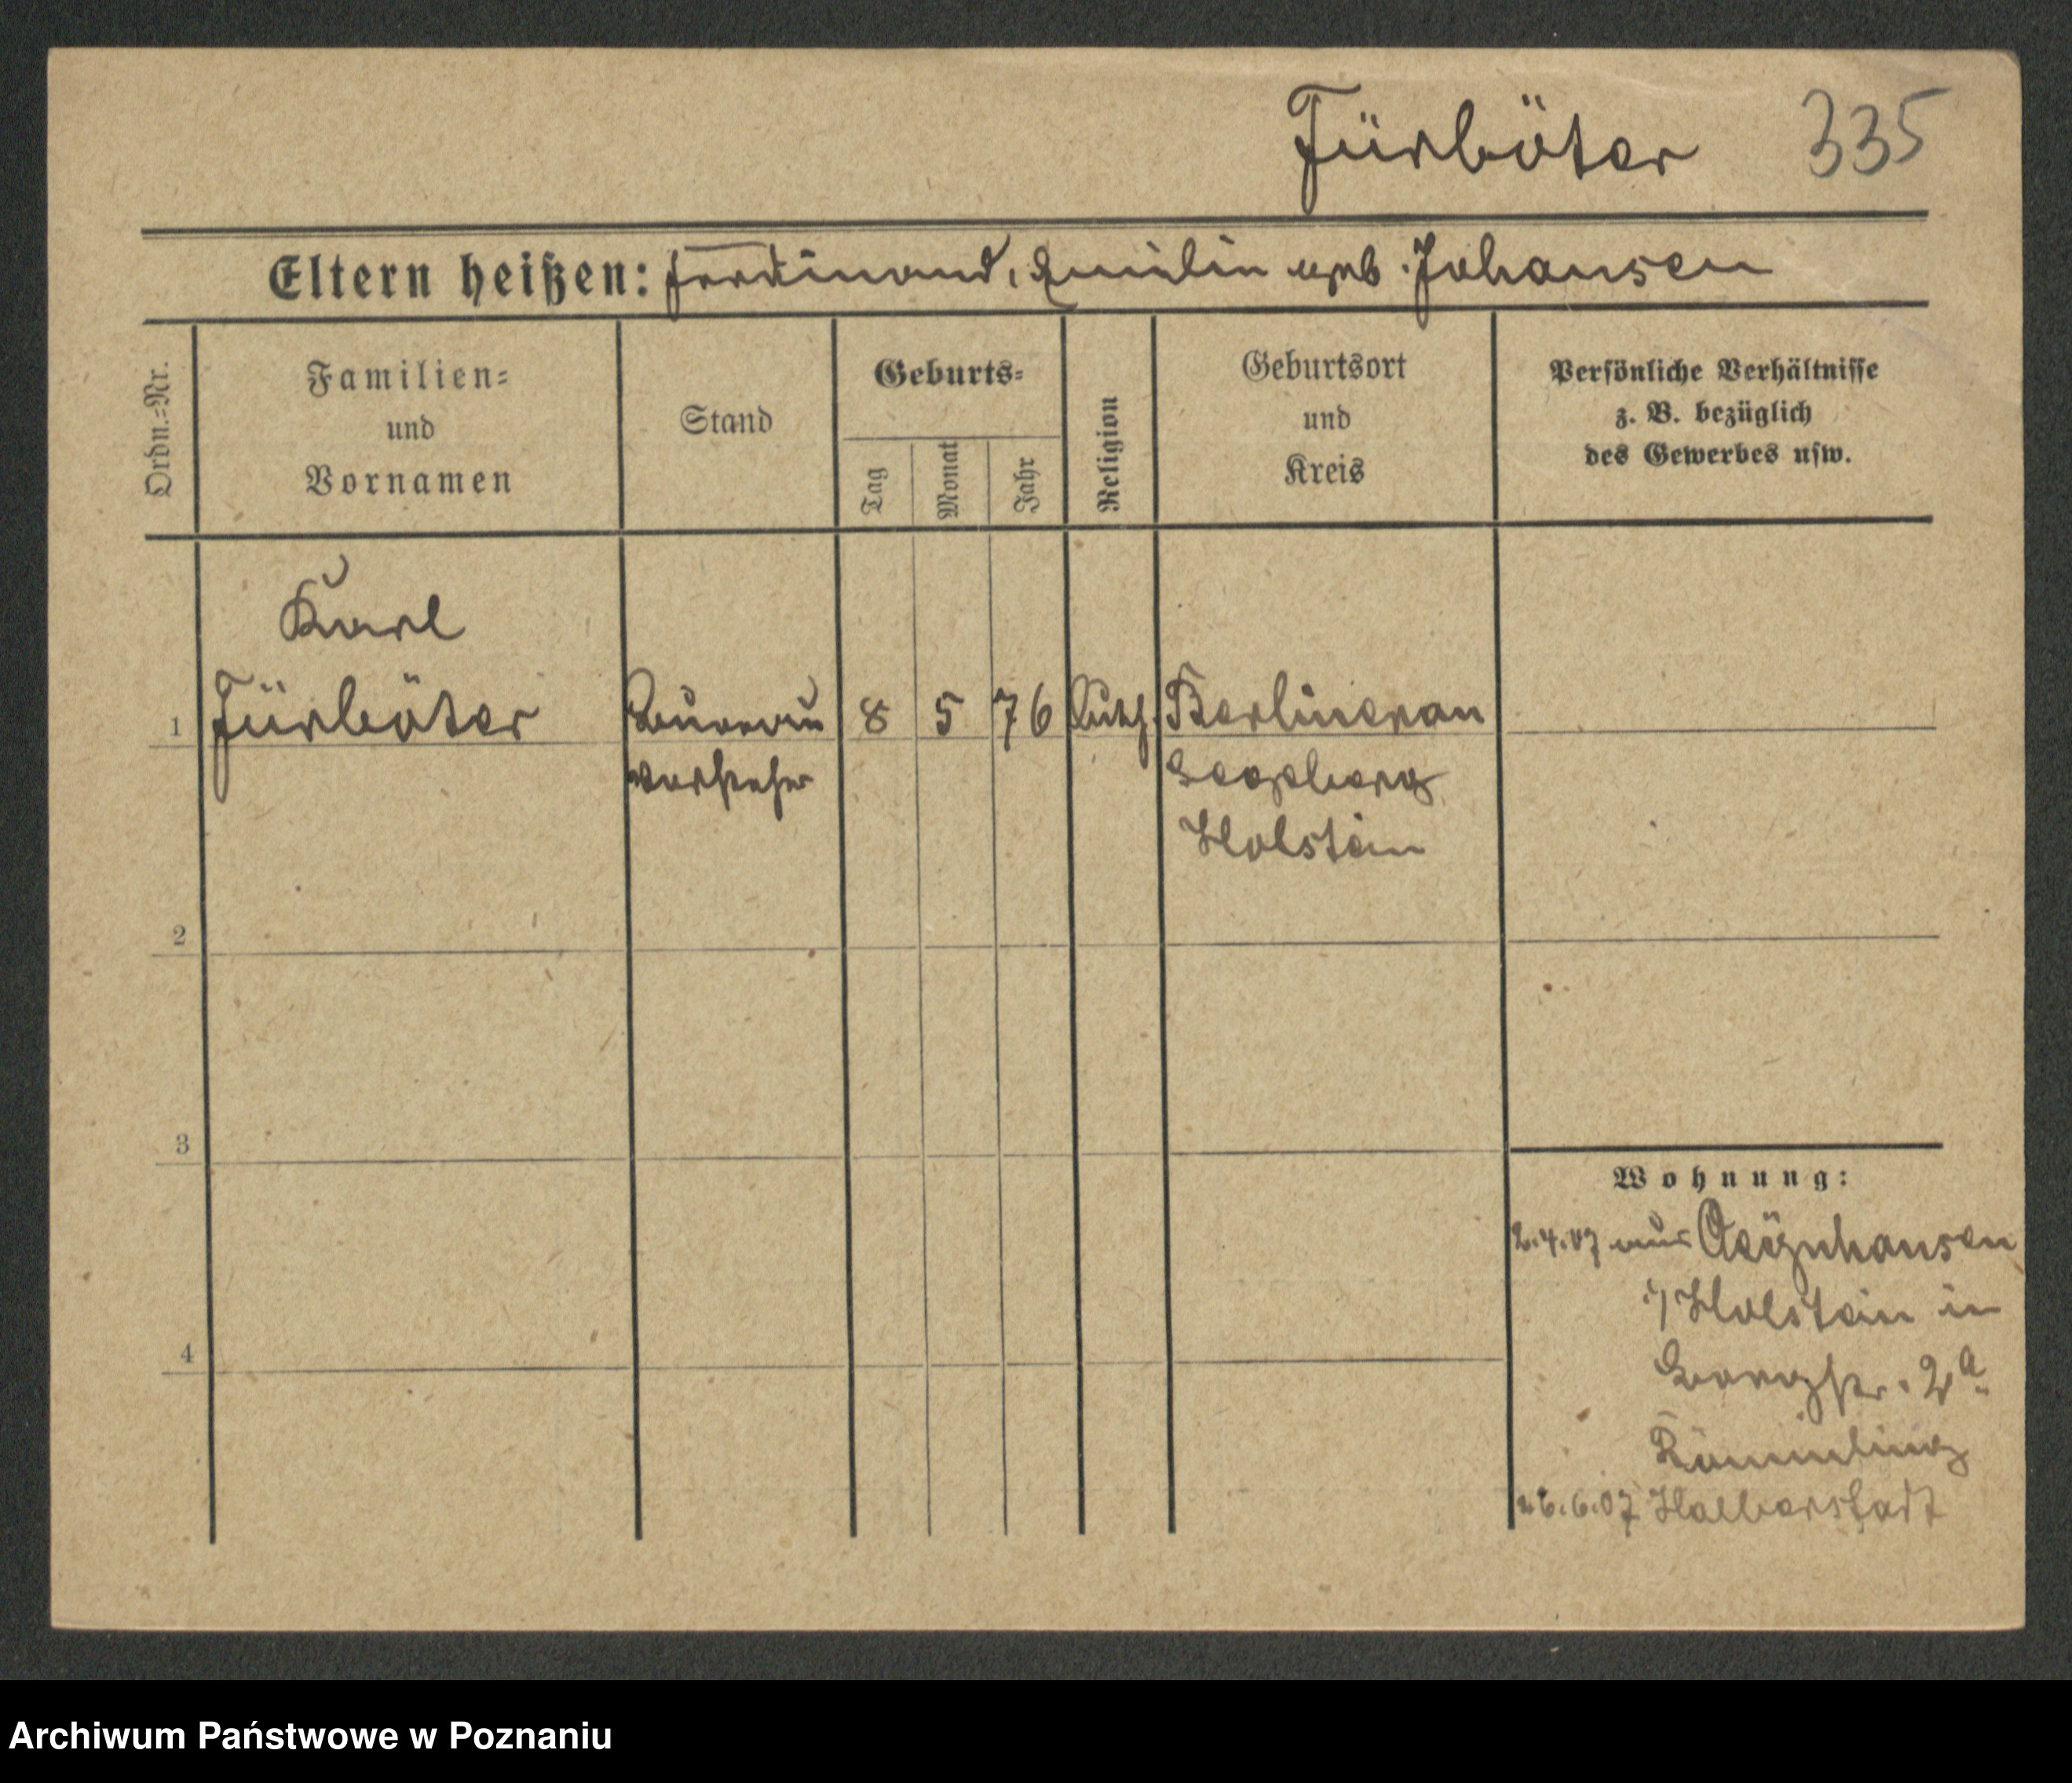 Fürböter 335
Eltern heißen: Ferdinand, Emilin geb. Johansen
Ordn.-Nr.
Familien-
und
Vornamen
Stand
Geburts-
Tag
Monat
Jahr
Religion
Geburtsort
und
Kreis
Persönliche Verhältnisse
z. B. bezüglich
des Gewerbes usw.
Karl
1 Fürböter Bureau 8 5 76 Luth. Berlineran
vorsteher Segeberg
Holstein
2
3
4
Wohnung:
2.4.07 aus Oeynhausen
i/Holstein in
2a
26.6.07 Halberstadt
Archiwum Państwowe w Poznaniu